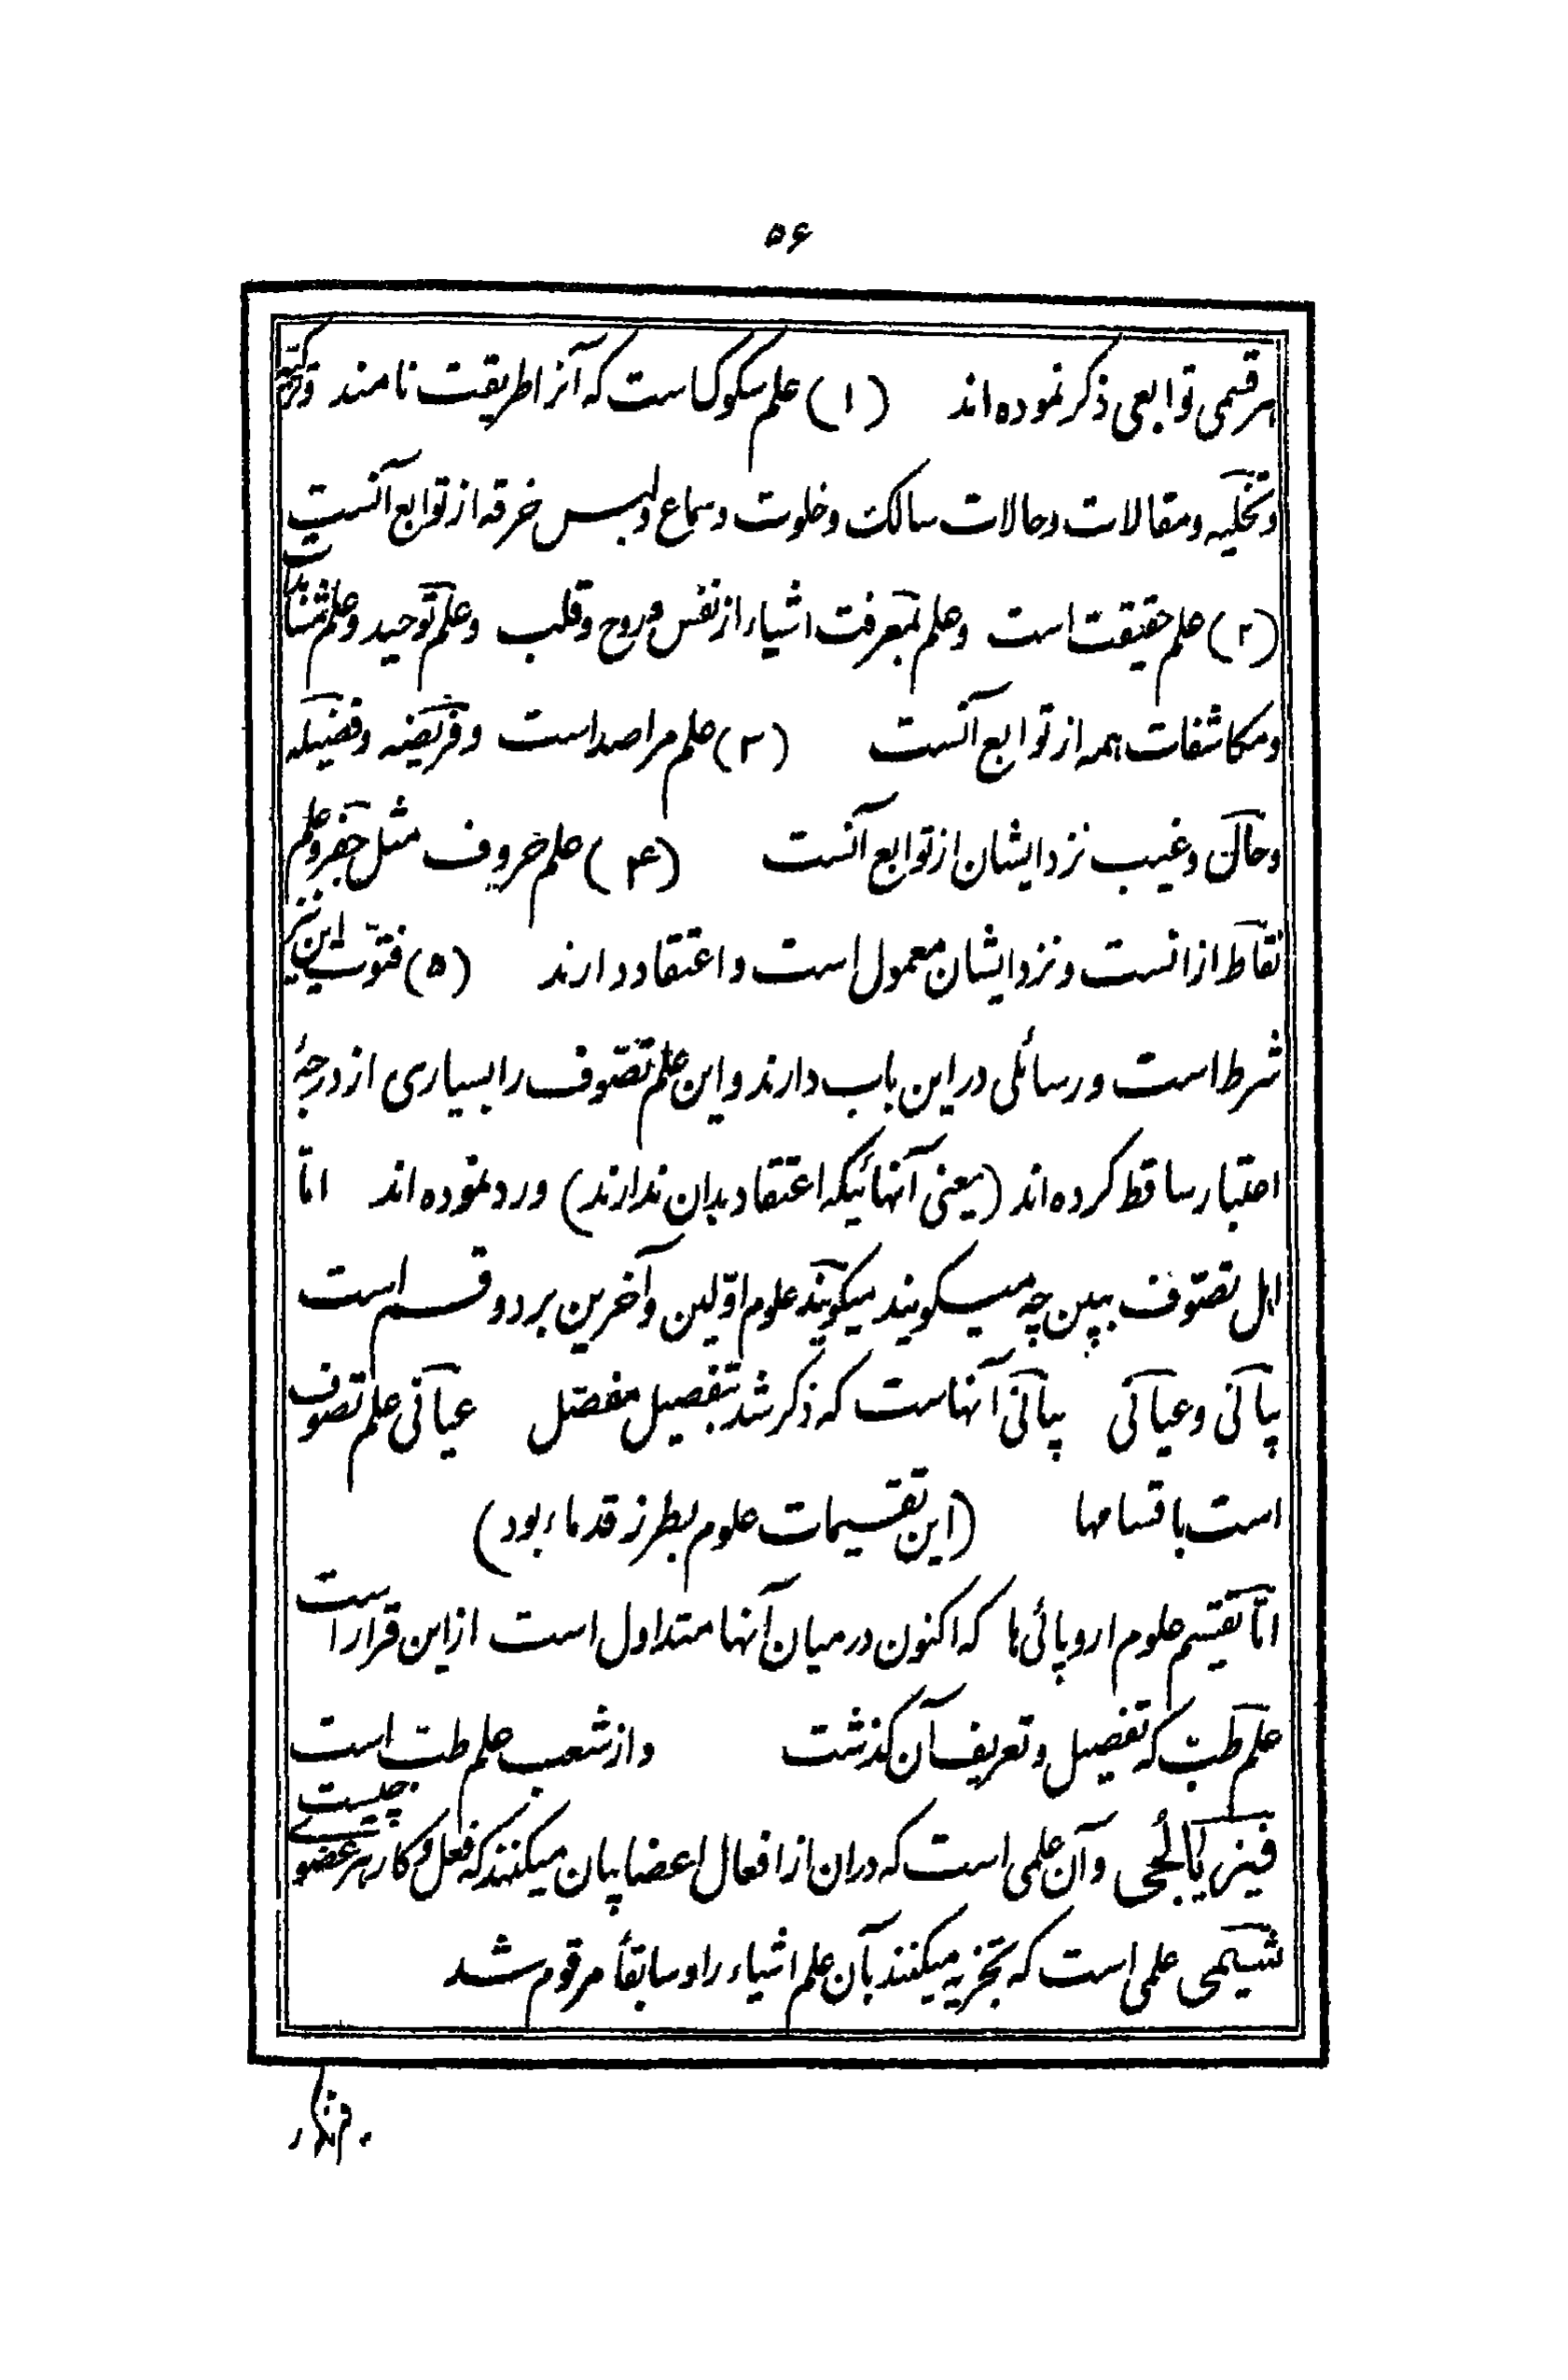 ۵۶
هرقسمی توابعی ذکر نموده اند (۱) علم سلوک است که آنرا طریقت نامند وتزکیه
وتخلیه ومقالات وحالات سالک وخلوت وسماع ولبس خرقه از توابع آنست
(۲) علم حقیقت است وعلم بمعرفت اشیاء از نفس وروح وقلب وعلم توحید وعلم مشاهدات
ومکاشفات همه از توابع آنست (۳) علم مراصد است وفریضه وفضیله
وحال وغیب نزد ایشان از توابع آنست (۴) علم حروف مثل جفر وعلم
نقاط از انست ونزد ایشان معمول است واعتقاد دارند (۵) فتوّت این نیز
شرط است ورسائلی در این باب دارند واین علم تصّوف را بسیاری از درجهٔ
اعتبار ساقط کرده اند (یعنی آنهائیکه اعتقاد بدان ندارند) ورد نموده اند امّا
اهل تصّوف ببین چه میگویند میگویند علوم اوّلین وآخرین بر دو قسم است
بیانی وعیانی بیانی آنهاست که ذکر شد بتفصیل مفصّل عیانی علم تصوف
است باقسامها (این تقسیمات علوم بطرز قدماء بود)
امّا تقسیم علوم اروپائی ها که اکنون در میان آنها متداول است از این قرار است
علم طبّ که تفصیل وتعریف آن گذشت واز شعب علم طبّ است
فیزیالُجی وآن علمی است که دران از افعال اعضا بیان میکنند که فعل وکار هر عضوی چیست
شیمی علمی است که تجزیه میکنند بآن علم اشیاء را وسابقاً مرقوم شد